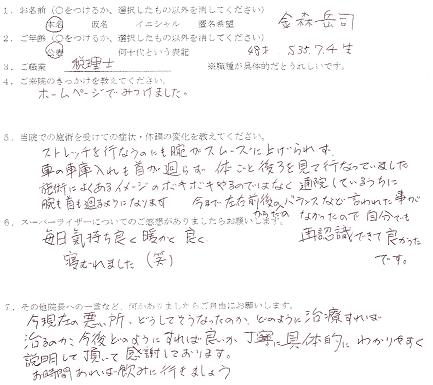 1. お名前（○をつけるか、選択したもの以外を消してください）
本名 仮名 イニシャル 匿名希望 金森岳司
2. ご年齢（○をつけるか、選択したもの以外を消してください）
公表 何十代という表記 48才 S35.7.4生
3. ご職業 税理士 ※職種が具体的だとうれしいです。
4. ご来院のきっかけを教えてください。
ホームページでみつけました。
5. 当院での施術を受けての症状・体調の変化を教えてください。
ストレッチを行なうのにも腕がスムーズに上げられず、
車の車庫入れも首が廻らず 体ごと後ろを見て行なっていました
施術によくあるイメージのボキボキやるのではなく 通院しているうちに
腕も首も廻るようになります 今まで左右前後のバランスなど言われた事が
なかったので自分でも
再認識できて良かった
です。
6. スーパーライザーについてのご感想がありましたらお願いします。
毎日気持ち良く暖かく良く
寝むれました（笑）
7. その他院長への一言など、何かありましたらご自由にお願いします。
今現在の悪い所、どうしてそうなったのか、どのように治療すれば
治るのか、今後どのようにすれば良いか 丁寧に具体的にわかりやすく
説明して頂いて感謝しております。
お時間あれば飲みに行きましょう